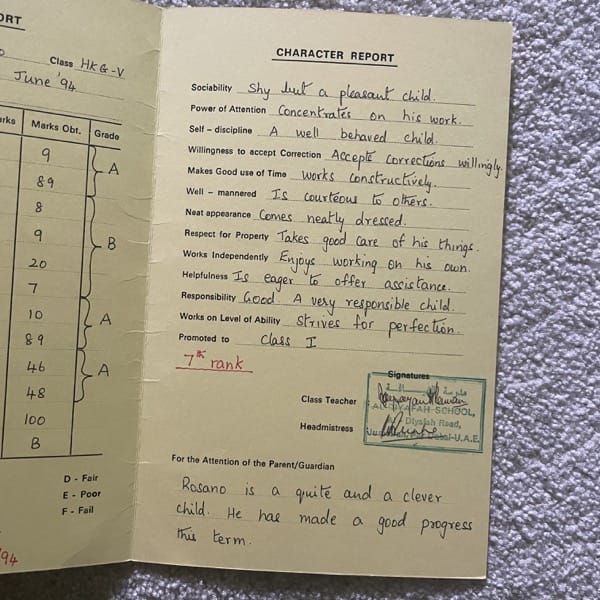 ORT
Class HKG-V
June '94
arks Marks Obt. Grade
9
89
A
8
9
20
7
B
10
89
A
46
48
A
100
B
D - Fair
E - Poor
F - Fail
/94
CHARACTER REPORT
Sociability Shy but a pleasant child.
Power of Attention Concentrates on his work.
Self - discipline A well behaved child.
Willingness to accept Correction Accepts corrections willingly.
Makes Good use of Time works constructively.
Well - mannered Is courteous to others.
Neat appearance Comes neatly dressed.
Respect for Property Takes good care of his things.
Works Independently Enjoys working on his own.
Helpfulness Is eager to offer assistance.
Responsibility Good. A very responsible child.
Works on Level of Ability strives for perfection.
Promoted to class I
7th rank
Signatures
Class Teacher
SCHOOL,
Diyafah Road,
Headmistress
U.A.E.
For the Attention of the Parent/Guardian
Rosano is a quite and a clever
child. He has made a good progress
this term.